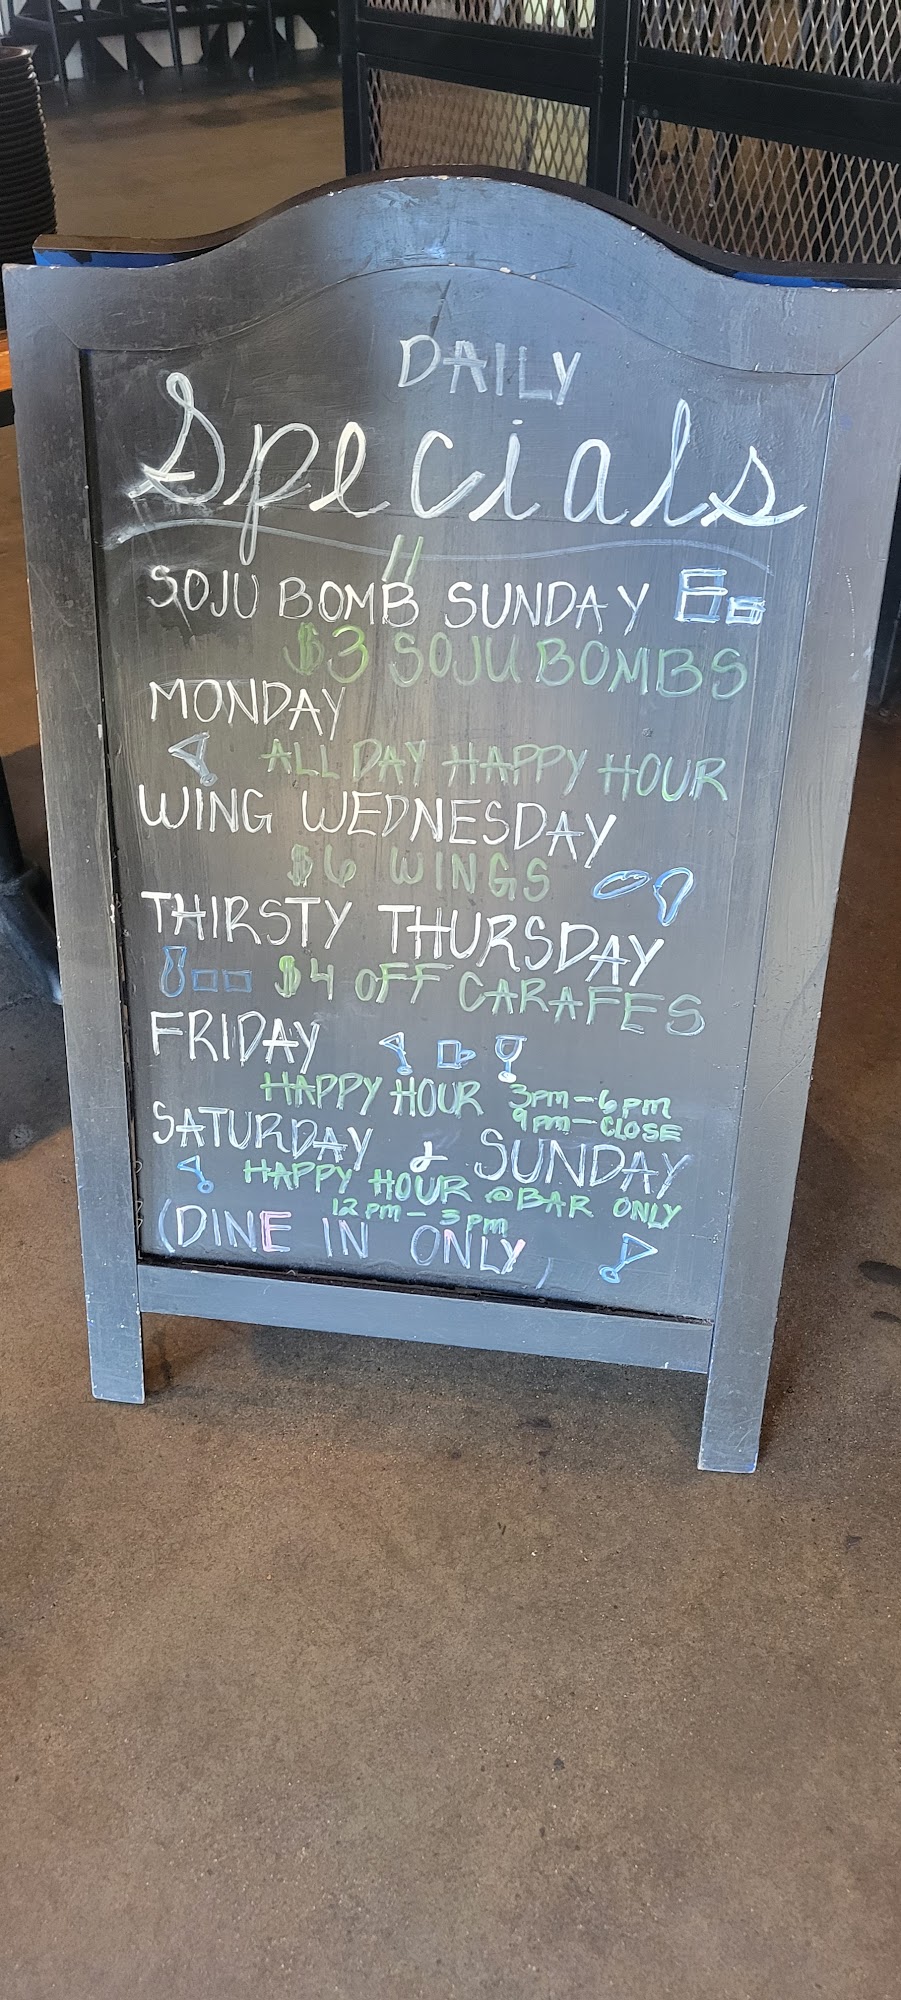 DAILY
Specials
SOJU BOMB SUNDAY
$3 SOJU BOMBS
MONDAY
ALL DAY HAPPY HOUR
WING WEDNESDAY
$6 WINGS
THIRSTY THURSDAY
$4 OFF CARAFES
FRIDAY
HAPPY HOUR 3pm-6pm
9pm-CLOSE
SATURDAY & SUNDAY
HAPPY HOUR @ BAR ONLY
12pm-3pm
(DINE IN ONLY)